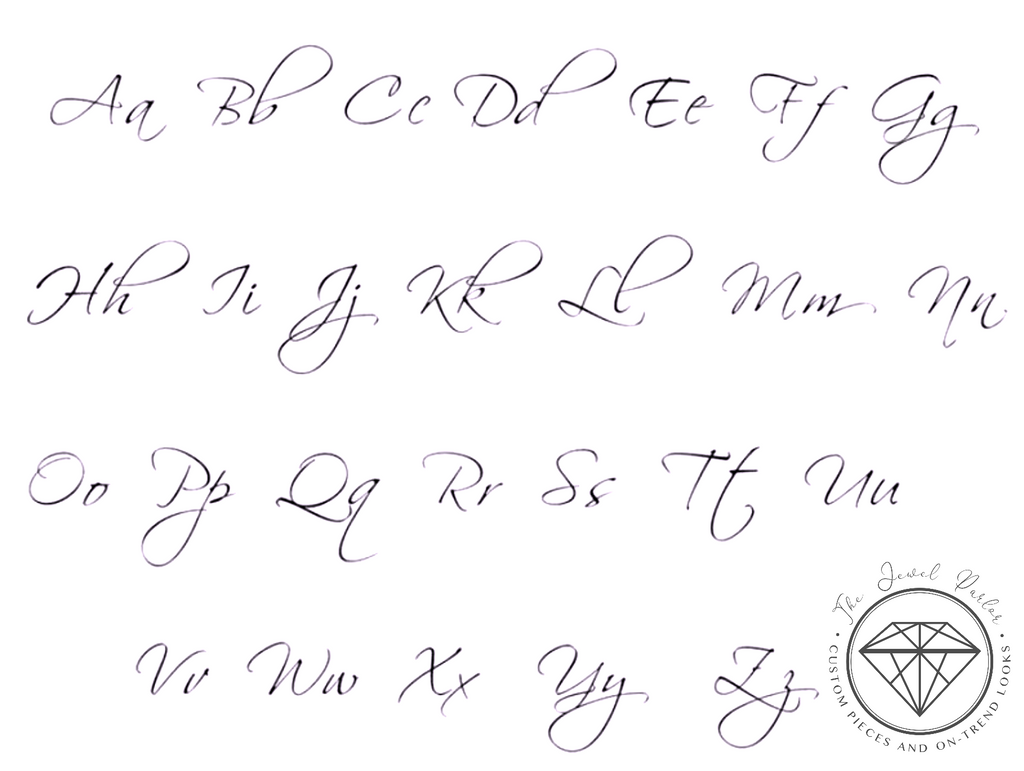 Aa Bb Cc Dd Ee Ff Gg
Hh Ii Jj Kk Ll Mm Nn
Oo Pp Qq Rr Ss Tt Uu
Vv Ww Xx Yy Zz
The Jewel Parlor
• CUSTOM PIECES AND ON-TREND LOOKS •